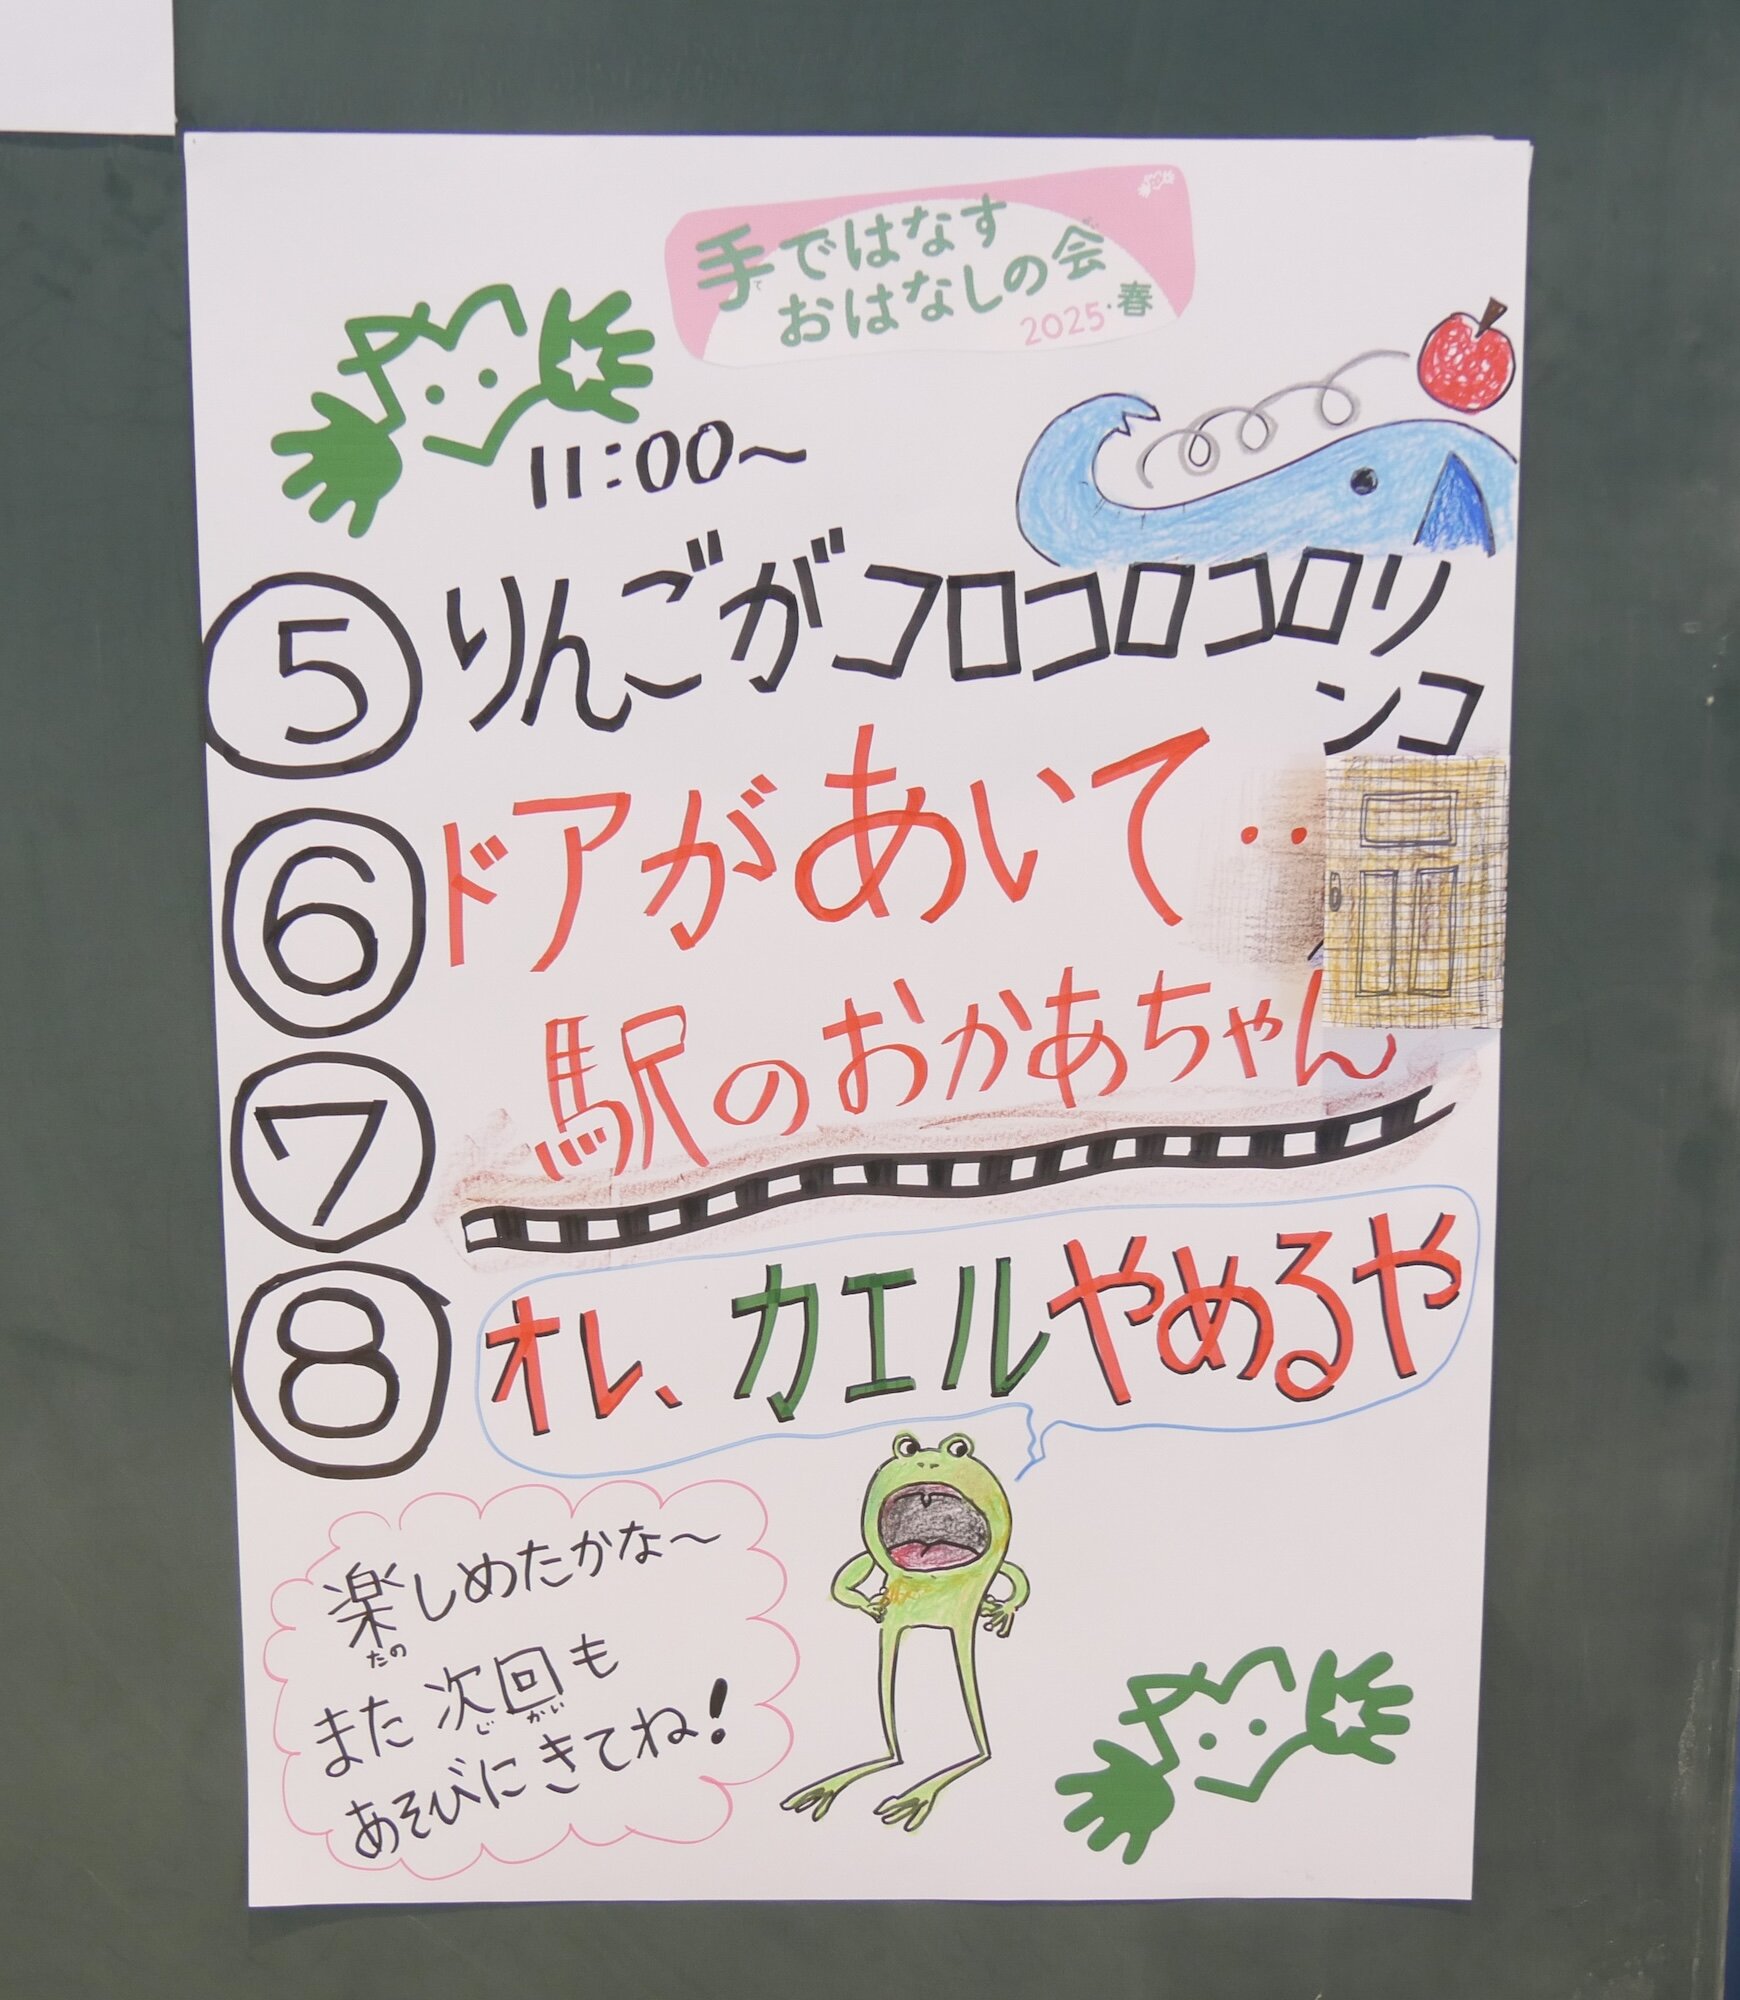 手ではなす
て
おはなしの会
2025・春
11:00〜
⑤ りんごがコロコロコロリ
ンコ
⑥ ドアがあいて‥
⑦ 駅のおかあちゃん
⑧ オレ、カエルやめるや
楽しめたかな〜
たの
また次回も
じ かい
あそびにきてね!